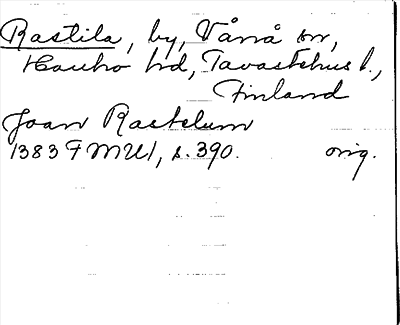 Rastila, by, Vånå sn,
Hauho hd, Tavastehus l.,
Finland
Joan Rastelum
1383 FMU 1, s. 390. orig.